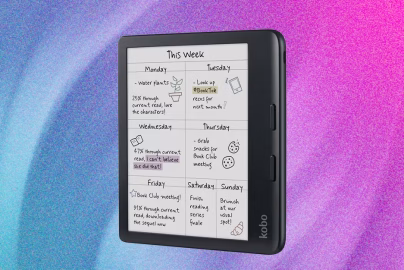 This Week
Monday
- Water plants
25% through
current read, love
the characters!
Tuesday
- Look up
#BookTok
recs for
next month!
Wednesday
47% through current
read, I can't believe
she did that!
Thursday
- Grab
snacks for
Book Club
meeting
Friday
Book Club meeting!
81% through current
read, downloading
the sequel now
Saturday
Finish
reading
series
finale
Sunday
Brunch
at our
usual
spot!
kobo